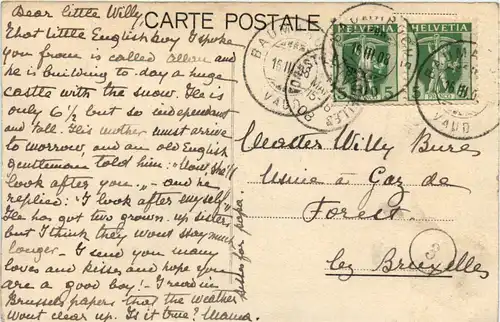 CARTE POSTALE
Dear little Willy,
that little English boy I spoke
you from is called Alban and
he is building to-day a huge
castle with the snow. He is
only 6½ but so independant
and tall. His mother must arrive
to morrow and an old English
gentleman told him: "Now, she'll
look after you." - and he
replied: "I look after myself"
He has got two grown-up sisters,
but I think they wont stay much
longer. - I send you many
loves and kisses and hope you
are a good boy! - I read in
Brussels papers, that the weather
wont clear up. Is it true? Mama.
Kisses for papa.
HELVETIA HELVETIA
5 5 5
BAUM
16 III 08
VAUD
FOREST
VAUD
Master Willy Bures
Usine à Gaz de
Forest
lez Bruxelles